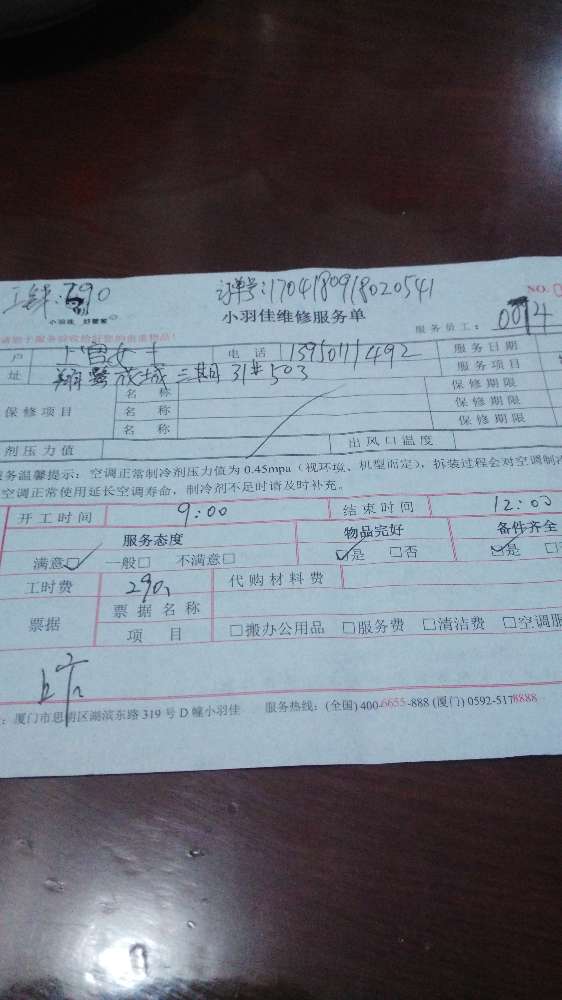 订单号:1704180918020541
NO.
小羽佳 好管家
小羽佳维修服务单
服务员工: 0014
户 上官女士 电话 13950111492 服务日期
址 翔鹭花城三期31#503 服务项目
保修项目 名称 保修期限
名称 保修期限
名称 保修期限
剂压力值 出风口温度
务温馨提示: 空调正常制冷剂压力值为 0.45mpa(视环境、机型而定), 拆装过程会对空调制冷
空调正常使用延长空调寿命, 制冷剂不足时请及时补充。
开工时间 9:00 结束时间 12:00
服务态度 物品完好 备件齐全
满意☑ 一般□ 不满意□ ☑是 □否 ☑是
工时费 290 代购材料费
票据 票据名称
项目 □搬办公用品 □服务费 □清洁费 □空调服
: 厦门市思明区湖滨东路 319 号 D 幢小羽佳 服务热线: (全国) 400-6655-888 (厦门) 0592-5178888